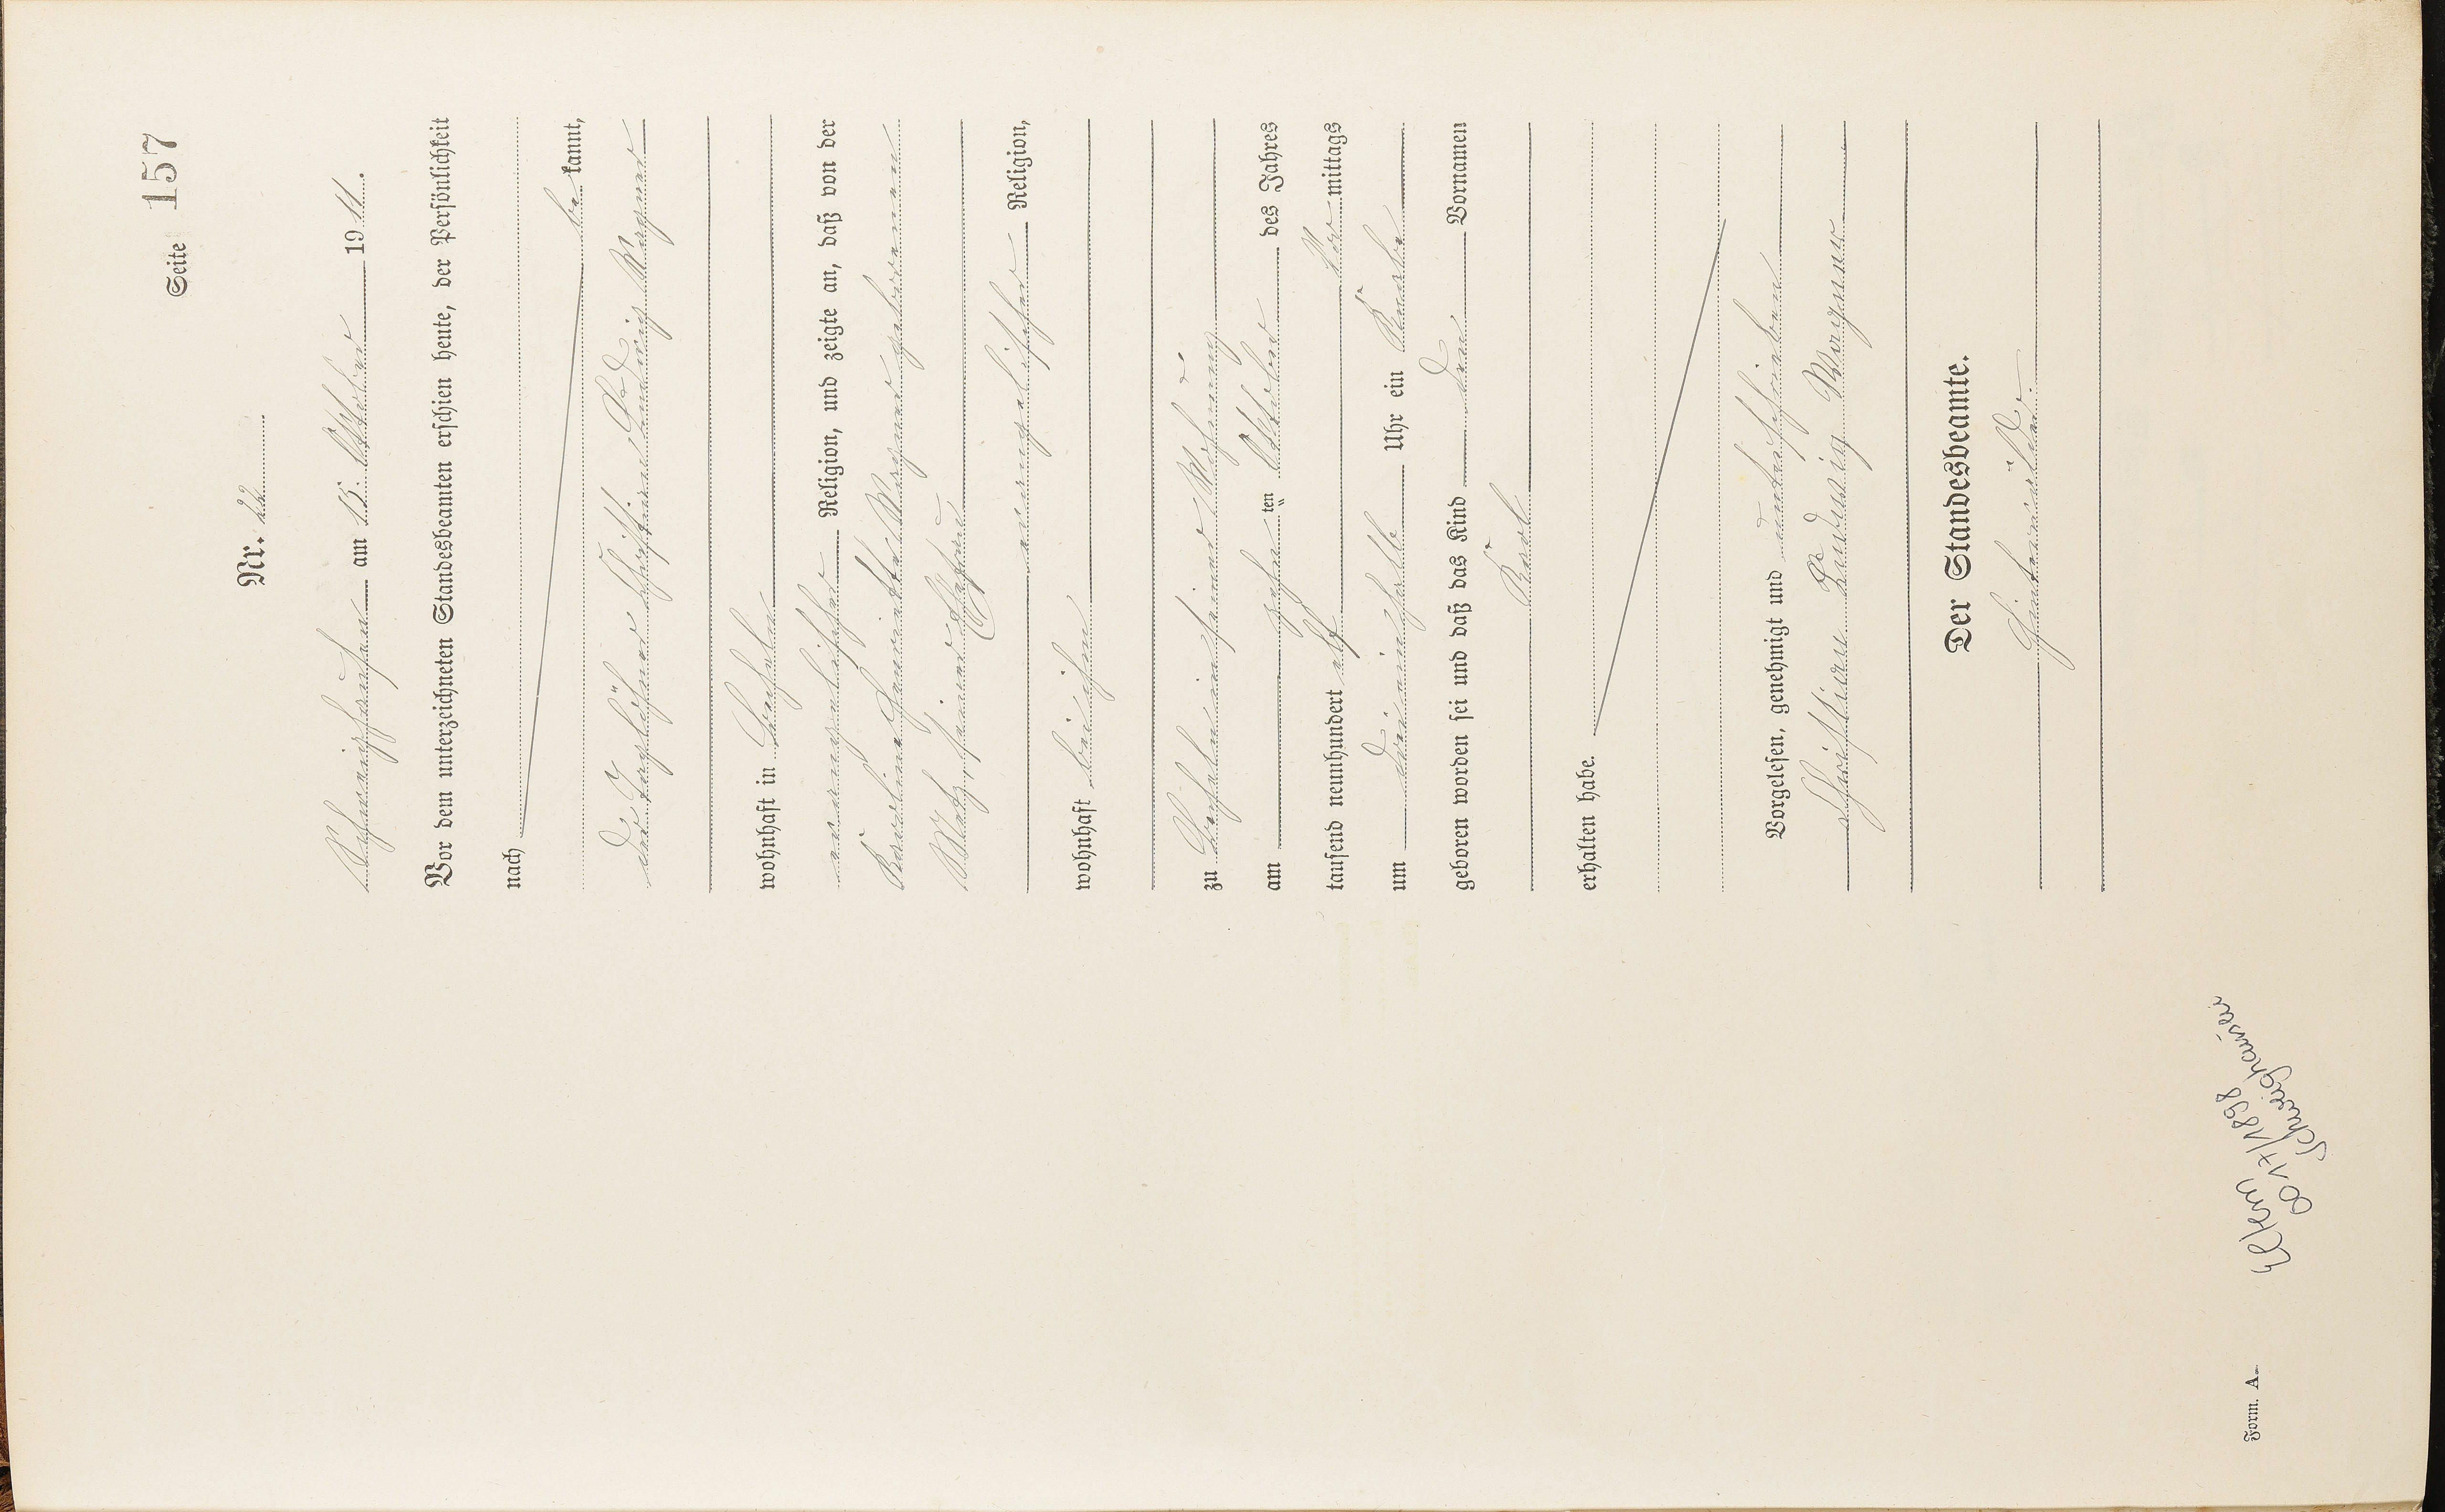 Seite 157
Nr. 22
Schweighausen am 15. Oktober 1911.
Vor dem unterzeichneten Standesbeamten erschien heute, der Persönlichkeit
nach
be kannt,
der Tagelöhner Christian Ludwig Wagner
wohnhaft in
evangelischer Religion, und zeigte an, daß von der
Karoline Henriette Wagner geborenen
seiner Ehefrau
evangelischer Religion,
wohnhaft bei ihm
zu in seiner Wohnung
am zehn ten Oktober des Jahres
tausend neunhundert elf Vor mittags
um drei einhalb Uhr ein Knabe
geboren worden sei und daß das Kind den Vornamen
Karl
erhalten habe.
Vorgelesen, genehmigt und unterschrieben
Christian Ludwig Wagner
Der Standesbeamte.
Form. A.
Eltern 1898
Schweighausen